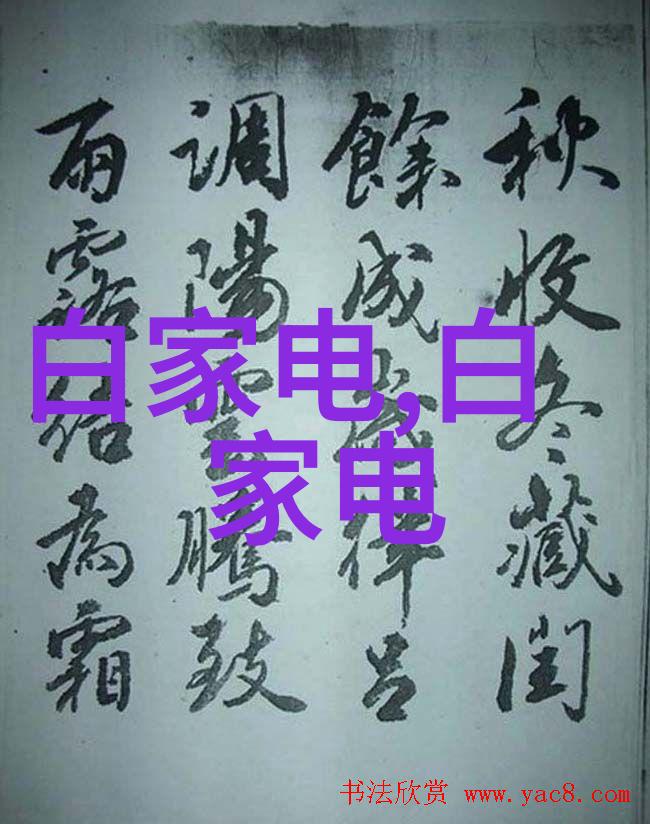 秋收冬藏閏
餘成歲律呂
調陽雲騰致
雨露結為霜
白家电,白
家电
书法欣赏 www.yac8.com